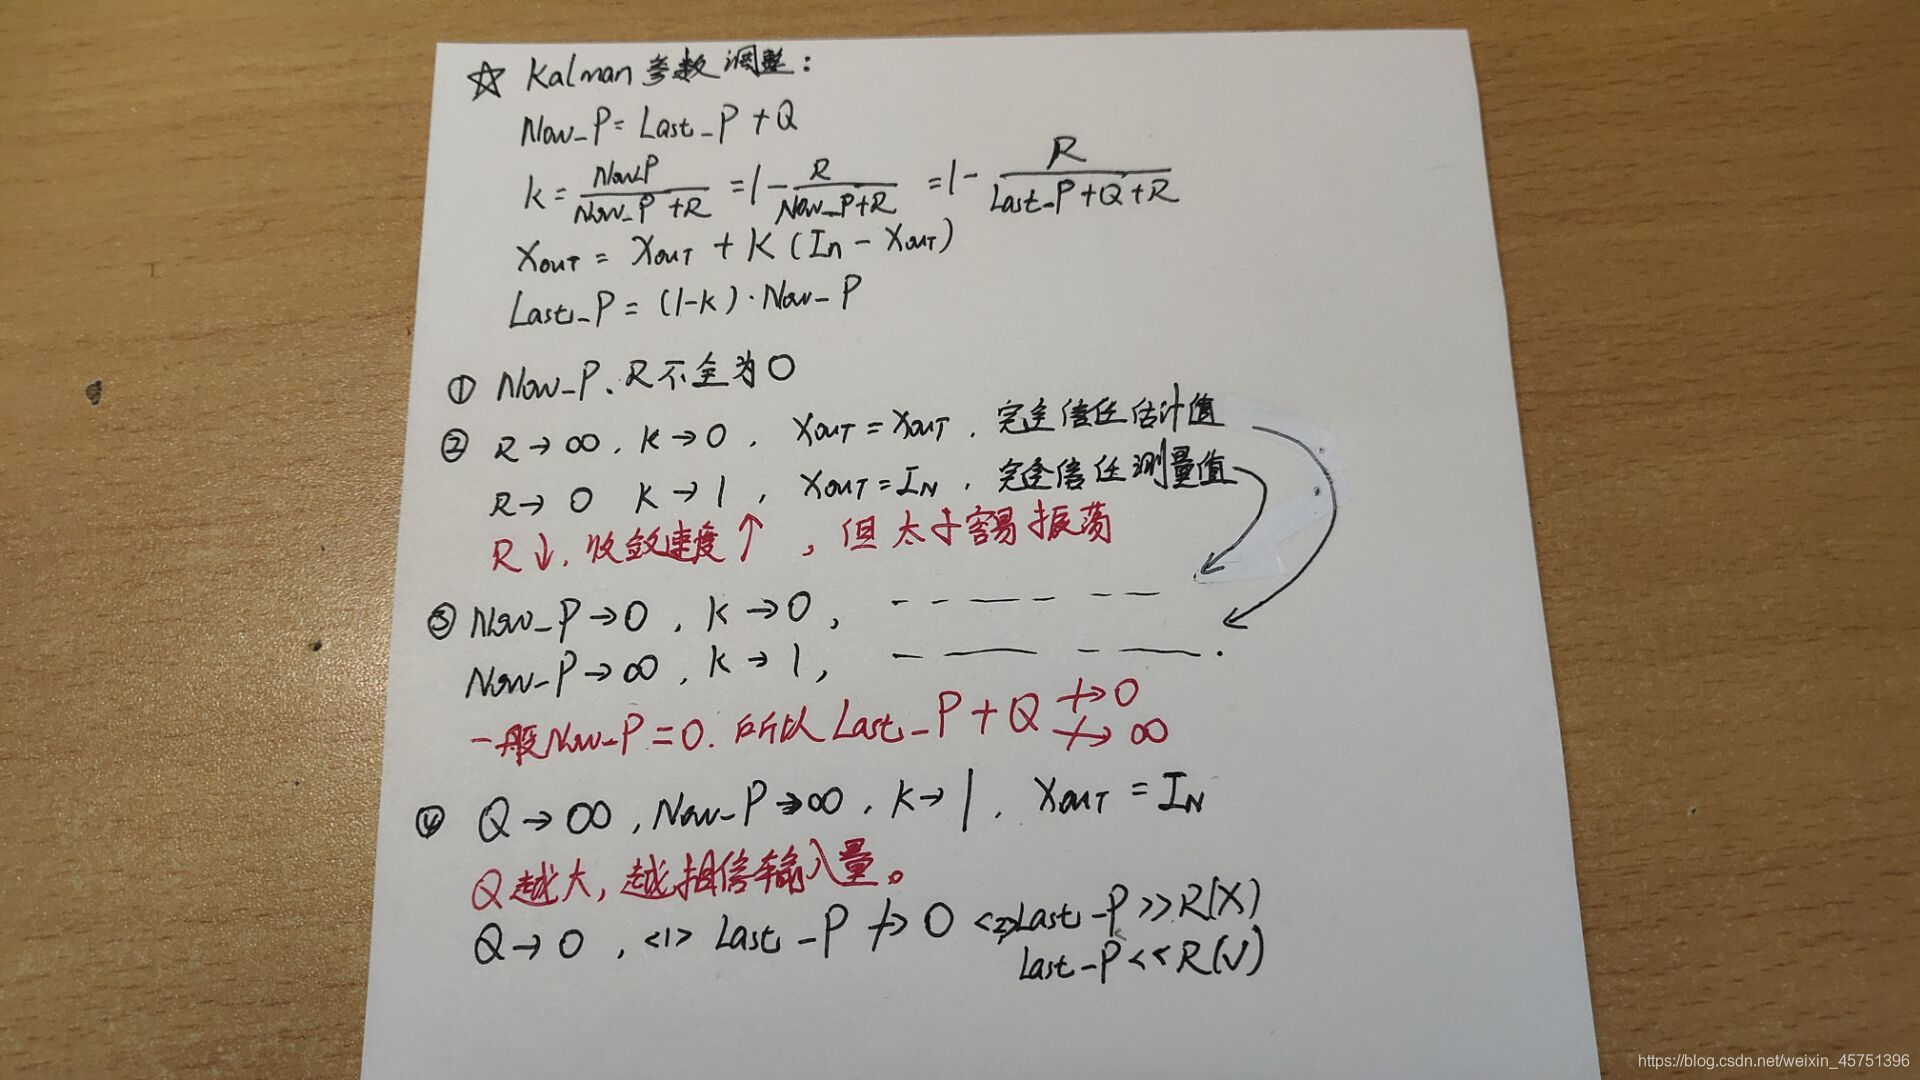 ☆ Kalman 参数调整:
Now_P = Last_P + Q
K = Now_P / (Now_P + R) = 1 - R / (Now_P + R) = 1 - R / (Last_P + Q + R)
XOUT = XOUT + K (In - XOUT)
Last_P = (1-K) · Now_P
① Now_P、R不全为0
② R → ∞, K → 0, XOUT = XOUT, 完全信任估计值
R → 0 K → 1, XOUT = IN, 完全信任测量值
R↓, 收敛速度↑, 但太小容易振荡
③ Now_P → 0, K → 0,
Now_P → ∞, K → 1,
一般Now_P = 0. 所以 Last_P + Q ↛ 0
↛ ∞
④ Q → ∞, Now_P → ∞, K → 1, XOUT = IN
Q越大, 越相信输入量。
Q → 0, <1> Last_P ↛ 0 <2> Last_P >> R(X)
Last_P << R(√)
https://blog.csdn.net/weixin_45751396